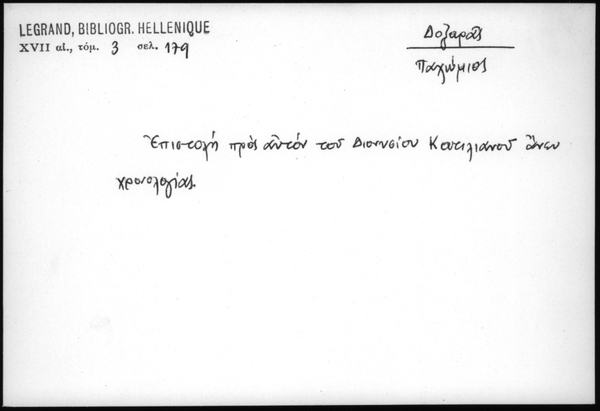 LEGRAND, BIBLIOGR. HELLENIQUE
XVII αἰ., τόμ. 3 σελ. 179
Δοξαρᾶς
Παχώμιος
Ἐπιστολὴ πρὸς αὐτὸν τοῦ Διονυσίου Κουτιλιανοῦ ἄνευ
χρονολογίας.